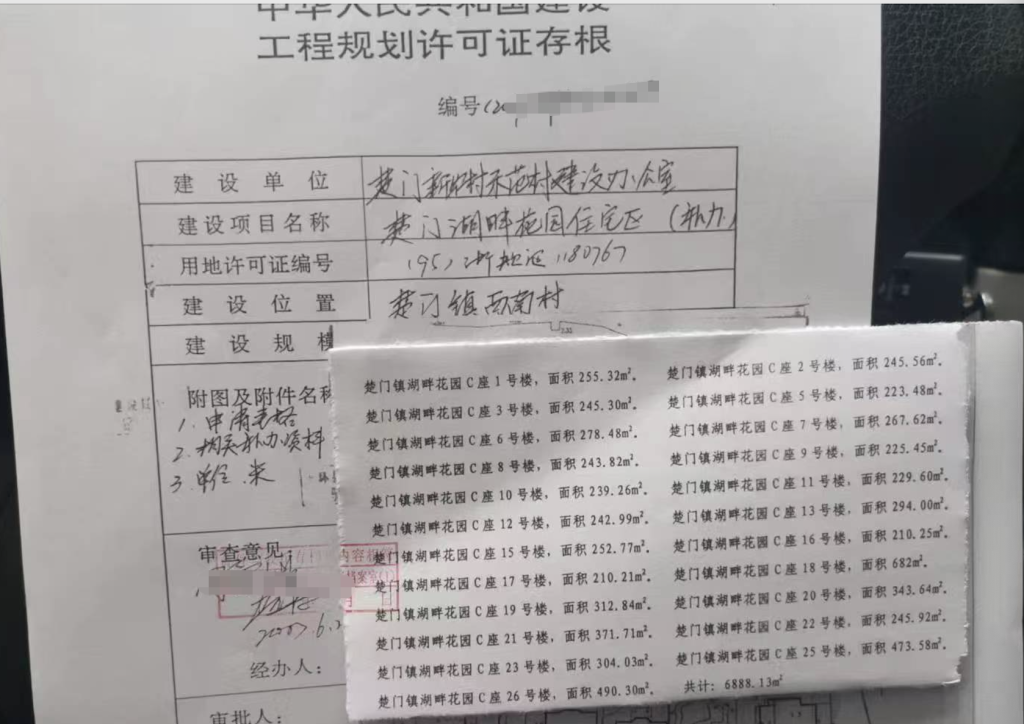 中华人民共和国建设
工程规划许可证存根
编号(20
建设单位 楚门新农村示范村建设办公室
建设项目名称 楚门湖畔花园住宅区（补办）
用地许可证编号 (95)浙规证1180767
建设位置 楚门镇西南村
建设规模
附图及附件名称
1. 申请表格
2. 相关补办资料
3.
审查意见：
2007.6.
经办人：
审批人：
楚门镇湖畔花园C座1号楼，面积255.32㎡。 楚门镇湖畔花园C座2号楼，面积245.56㎡。
楚门镇湖畔花园C座3号楼，面积245.30㎡。 楚门镇湖畔花园C座5号楼，面积223.48㎡。
楚门镇湖畔花园C座6号楼，面积278.48㎡。 楚门镇湖畔花园C座7号楼，面积267.62㎡。
楚门镇湖畔花园C座8号楼，面积243.82㎡。 楚门镇湖畔花园C座9号楼，面积225.45㎡。
楚门镇湖畔花园C座10号楼，面积239.26㎡。 楚门镇湖畔花园C座11号楼，面积229.60㎡。
楚门镇湖畔花园C座12号楼，面积242.99㎡。 楚门镇湖畔花园C座13号楼，面积294.00㎡。
楚门镇湖畔花园C座15号楼，面积252.77㎡。 楚门镇湖畔花园C座16号楼，面积210.25㎡。
楚门镇湖畔花园C座17号楼，面积210.21㎡。 楚门镇湖畔花园C座18号楼，面积682㎡。
楚门镇湖畔花园C座19号楼，面积312.84㎡。 楚门镇湖畔花园C座20号楼，面积343.64㎡。
楚门镇湖畔花园C座21号楼，面积371.71㎡。 楚门镇湖畔花园C座22号楼，面积245.92㎡。
楚门镇湖畔花园C座23号楼，面积304.03㎡。 楚门镇湖畔花园C座25号楼，面积473.58㎡。
楚门镇湖畔花园C座26号楼，面积490.30㎡。 共计：6888.13㎡